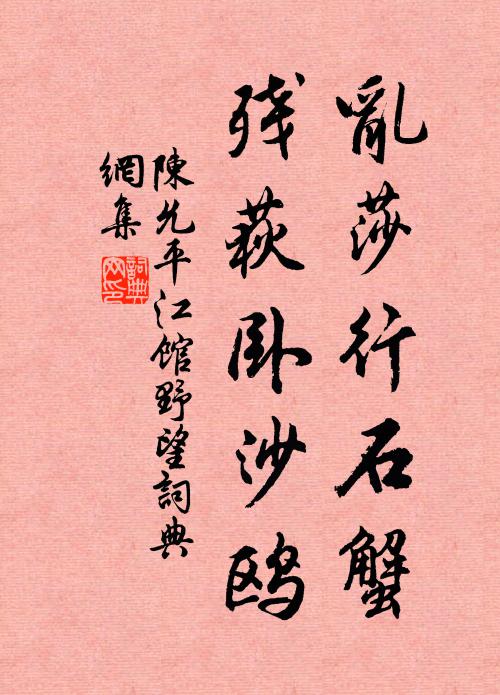 亂莎行石蟹
残荻卧沙鸥
陳允平江館野望詞典
網集
詞典網印